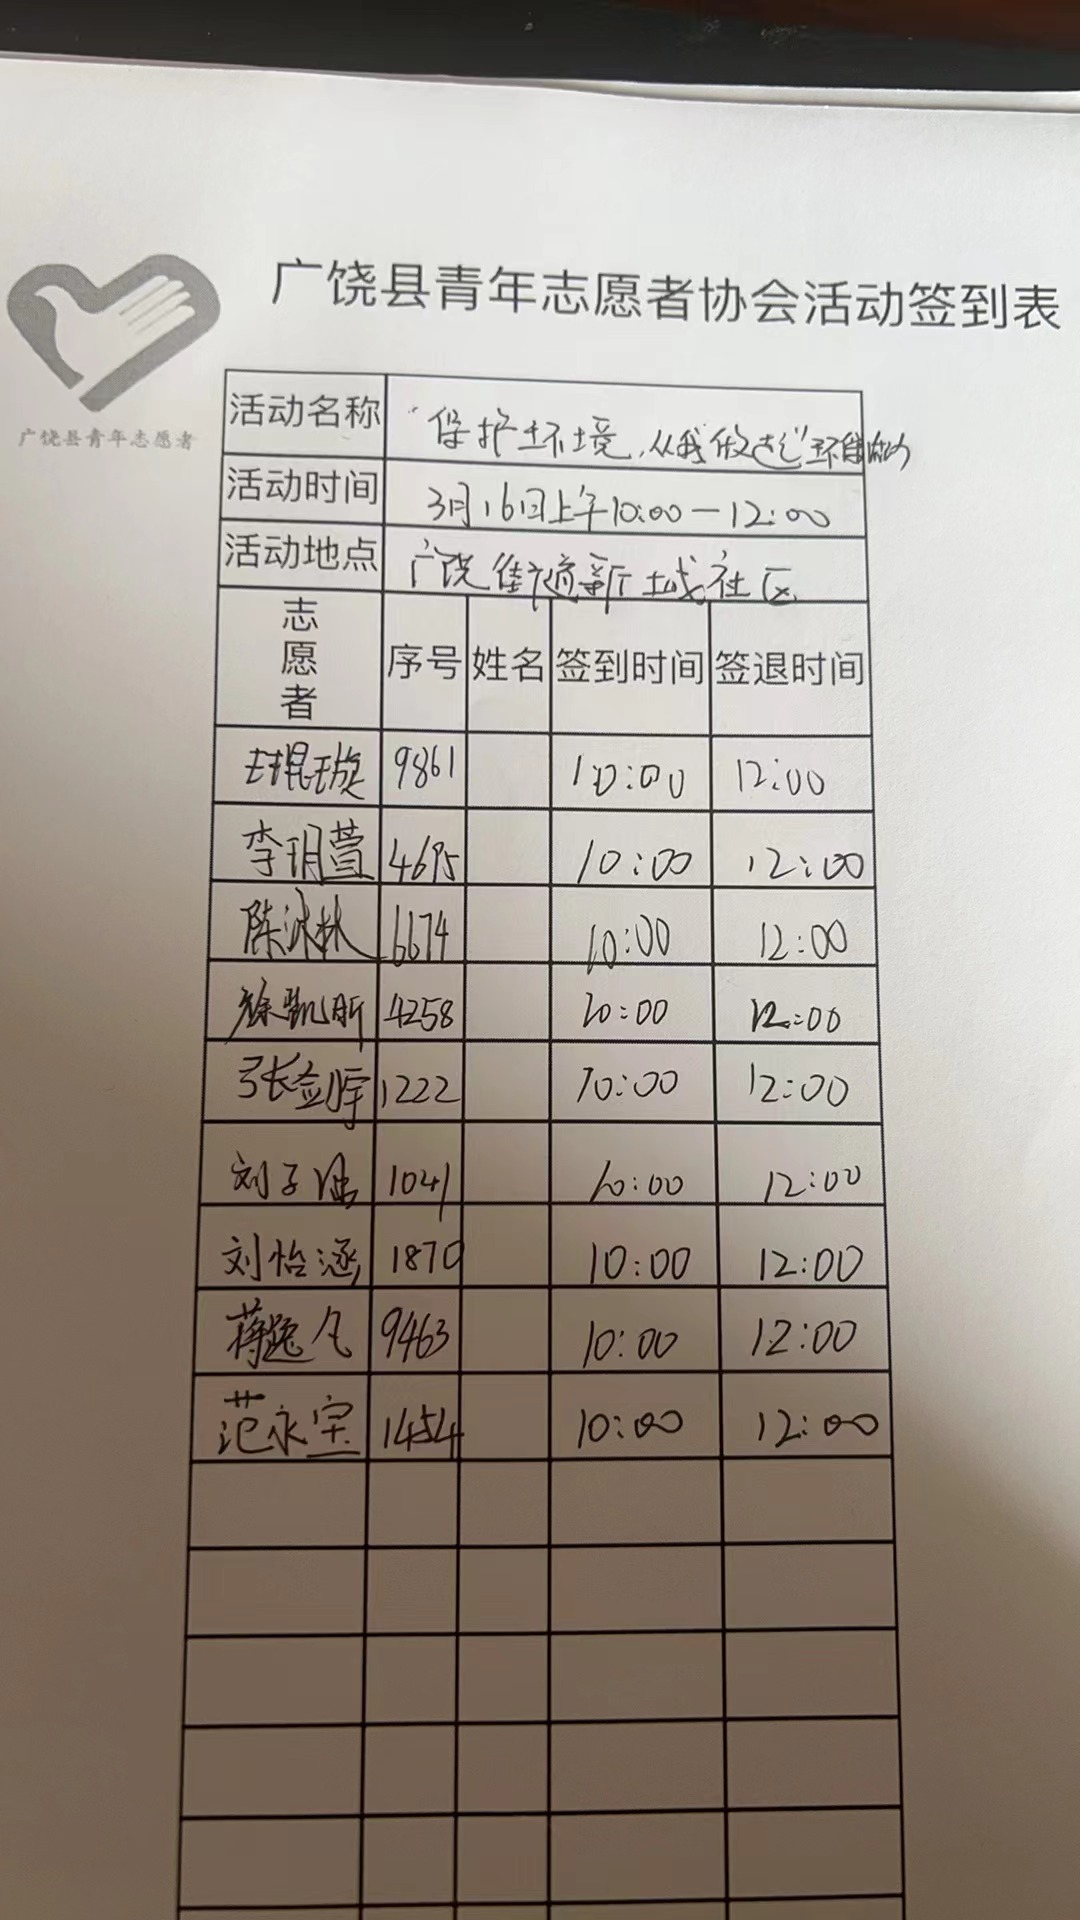 广饶县青年志愿者协会活动签到表
广饶县青年志愿者
活动名称 "保护环境,从我做起"环保活动
活动时间 3月16日上午10:00—12:00
活动地点 广饶街道新城社区
志愿者 序号 姓名 签到时间 签退时间
王琨璇 9861 10:00 12:00
李玥萱 4695 10:00 12:00
陈林 6674 10:00 12:00
徐凯昕 4258 10:00 12:00
张剑宇 1222 10:00 12:00
刘子 1041 10:00 12:00
刘怡涵 1870 10:00 12:00
蒋逸凡 9463 10:00 12:00
范永宝 1454 10:00 12:00